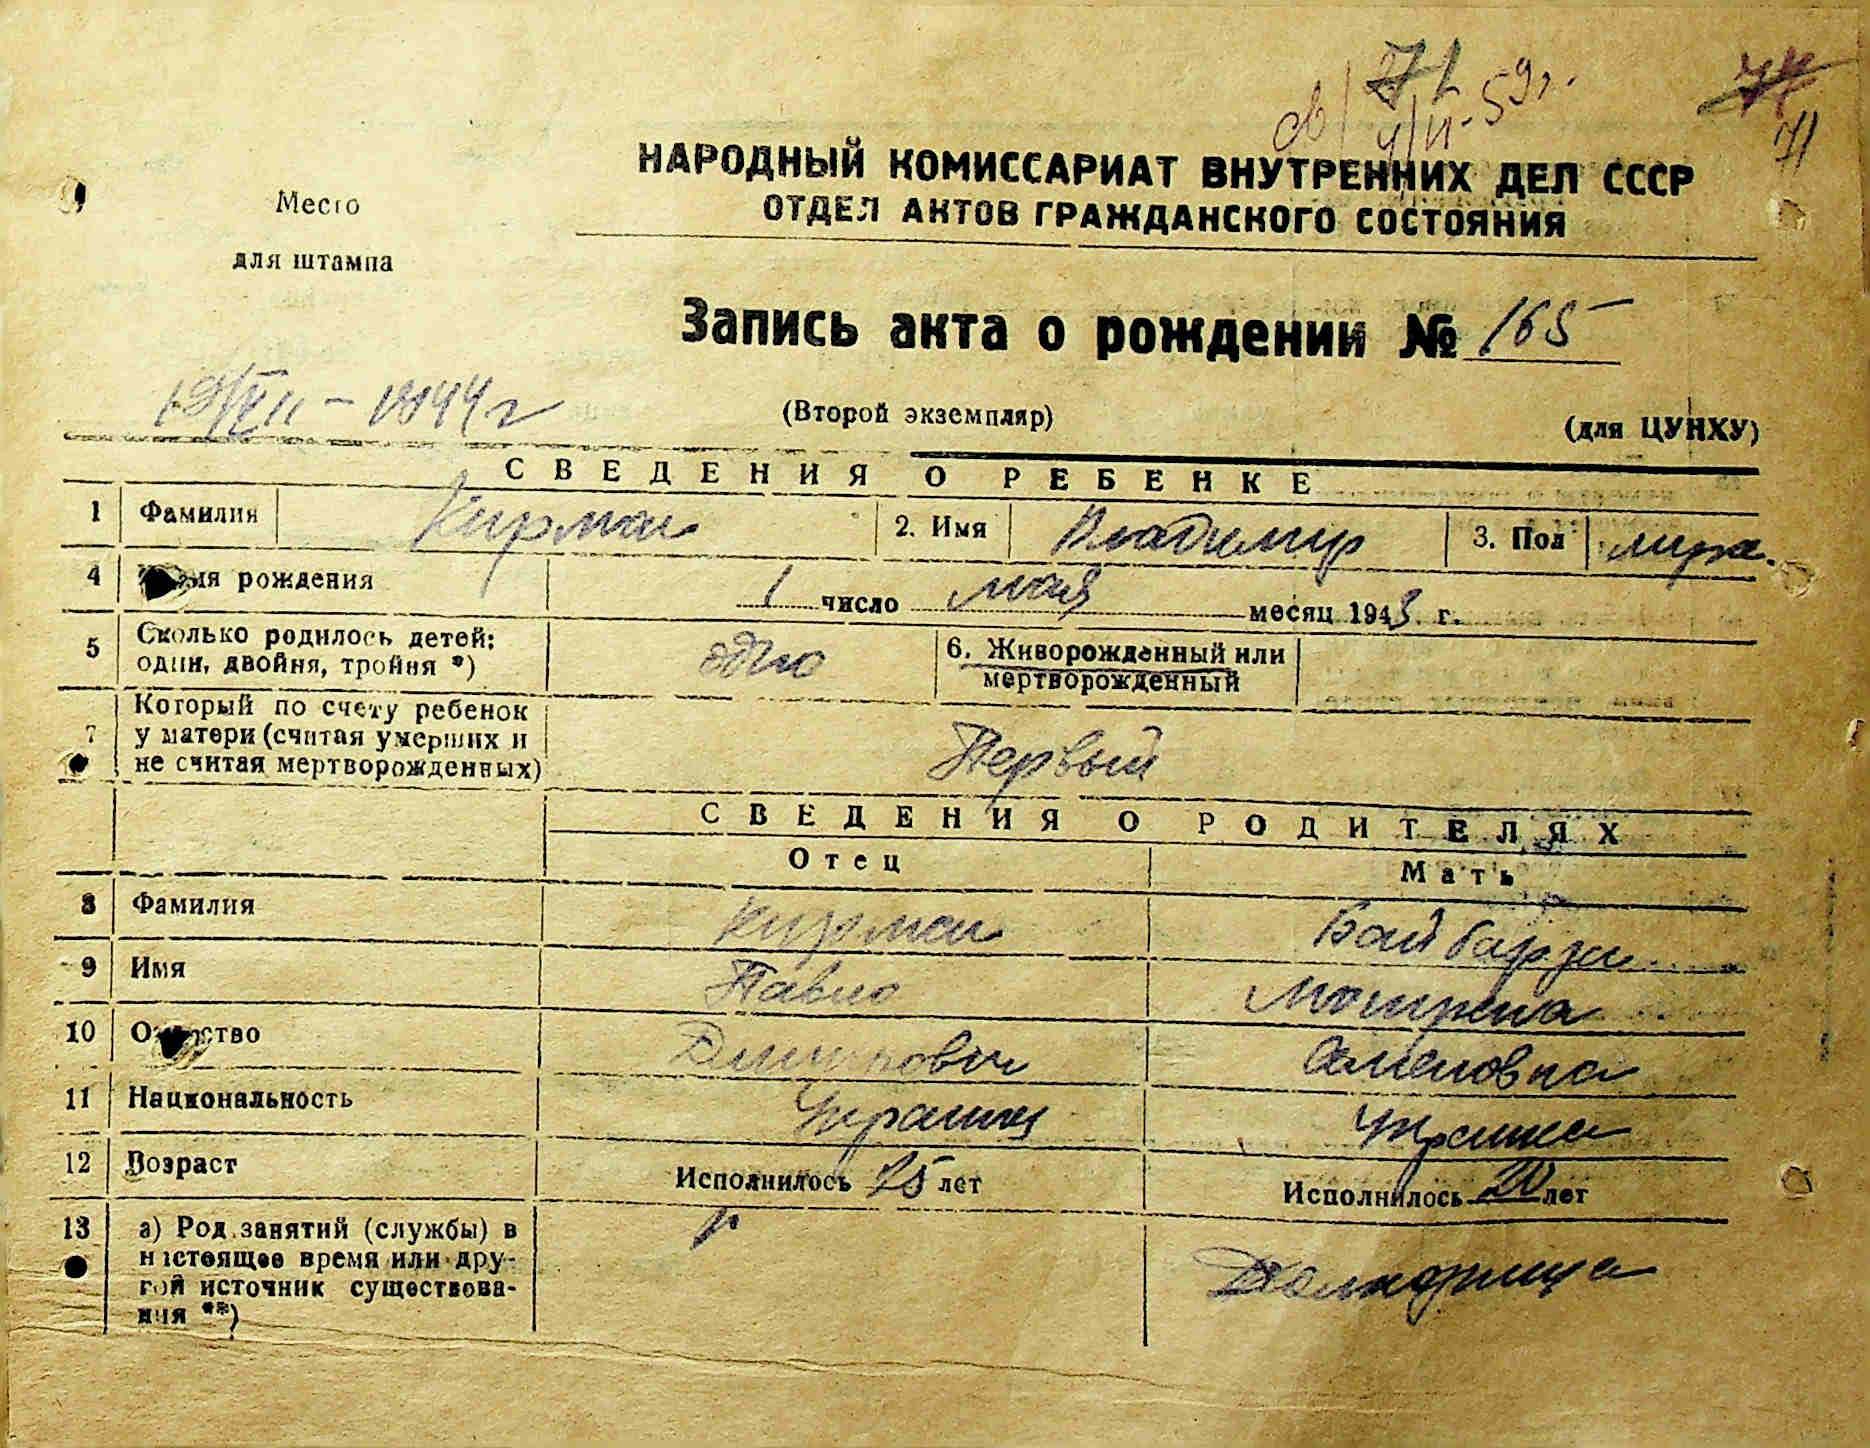 71
св/ 4/VI-59г.
71
Место
для штампа
НАРОДНЫЙ КОМИССАРИАТ ВНУТРЕННИХ ДЕЛ СССР
ОТДЕЛ АКТОВ ГРАЖДАНСКОГО СОСТОЯНИЯ
Запись акта о рождении № 165
1944 г
(Второй экземпляр)
(для ЦУНХУ)
СВЕДЕНИЯ О РЕБЕНКЕ
1 Фамилия Кирман 2. Имя Владимир 3. Пол
4 Время рождения 1 число мая месяц 1943 г.
5 Сколько родилось детей:
один, двойня, тройня *) одно
6. Живорожденный или
мертворожденный
7 Который по счету ребенок
у матери (считая умерших и
не считая мертворожденных) Первый
СВЕДЕНИЯ О РОДИТЕЛЯХ
Отец Мать
8 Фамилия Кирман
9 Имя Павло Мотрена
10 Отчество Дмитрович Семеновна
11 Национальность Украинц Украинка
12 Возраст Исполнилось 25 лет Исполнилось 20 лет
13 а) Род занятий (службы) в
настоящее время или дру-
гой источник существова-
ния **)